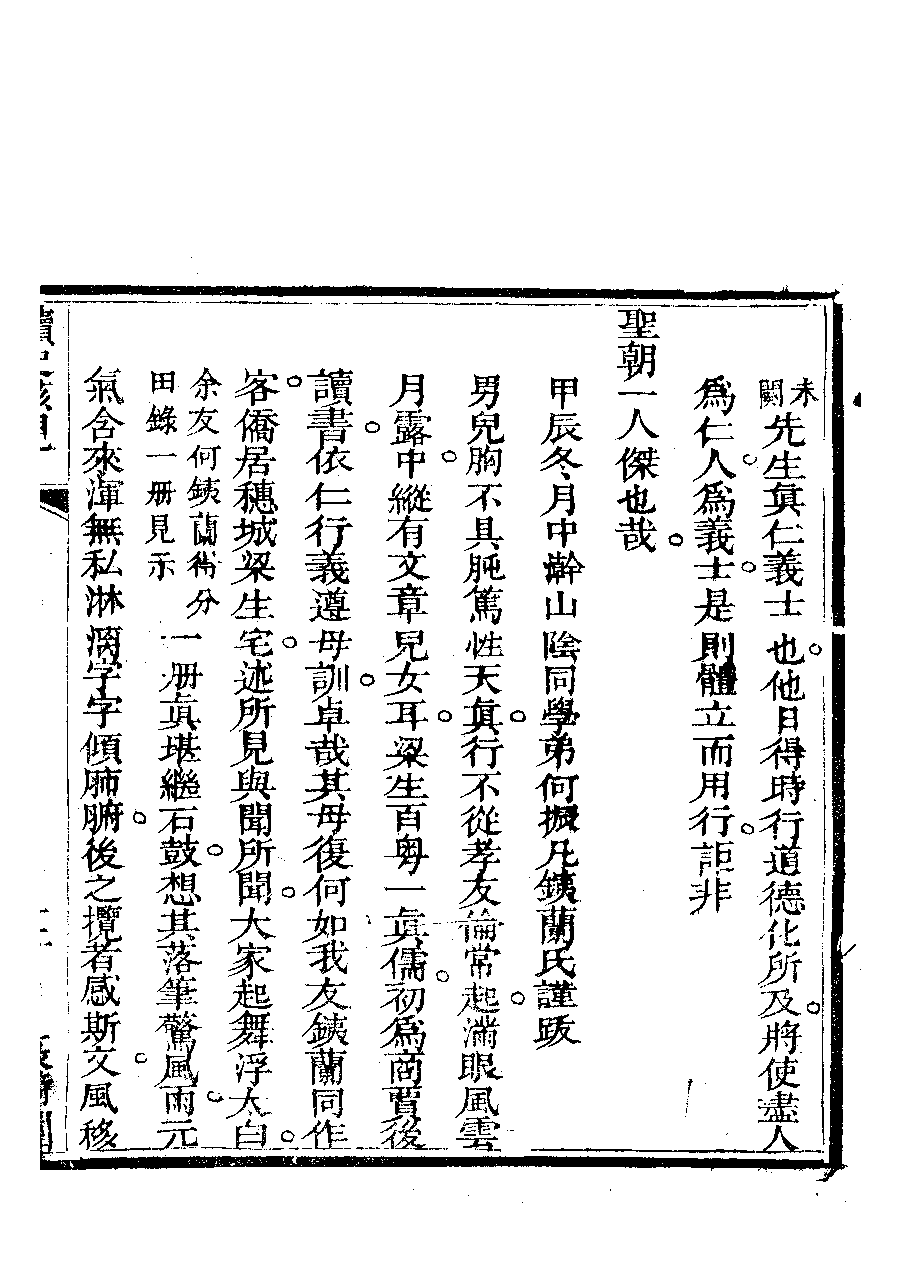 未闕先生眞仁義士也他日得時行道德化所及將使盡人
爲仁人爲義士是則體立而用行詎非
聖朝一人傑也哉
甲辰冬月中澣山陰同學弟何振凡銕蘭氏謹跋
男兒胸不具肫篤性天眞行不從孝友倫常起滿眼風雲
月露中縱有文章兒女耳梁生百粤一眞儒初爲商賈後
讀書依仁行義遵母訓卓哉其母復何如我友銕蘭同作
客僑居穗城梁生宅述所見與聞所聞大家起舞浮大白
余友何銕蘭得分
田錄一册見示
一册眞堪繼石鼓想其落筆驚風雨元
氣含來渾無私淋漓字字傾肺腑後之攬者感斯文風移